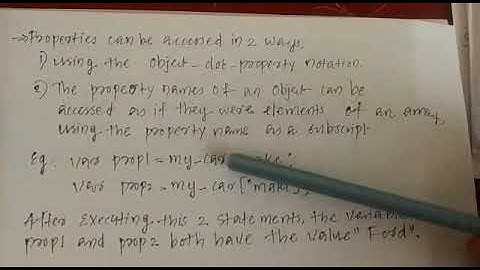 → Properties can be accessed in 2 ways.
1) Using the object-dot-property notation.
2) The property names of an object can be
accessed as if they were elements of an array,
using the property name as a subscript
Eg. var prop1 = my_car.make;
var prop2 = my_car["make"];
After executing this 2 statements, the
prop1 and prop2 both have the value "Ford".